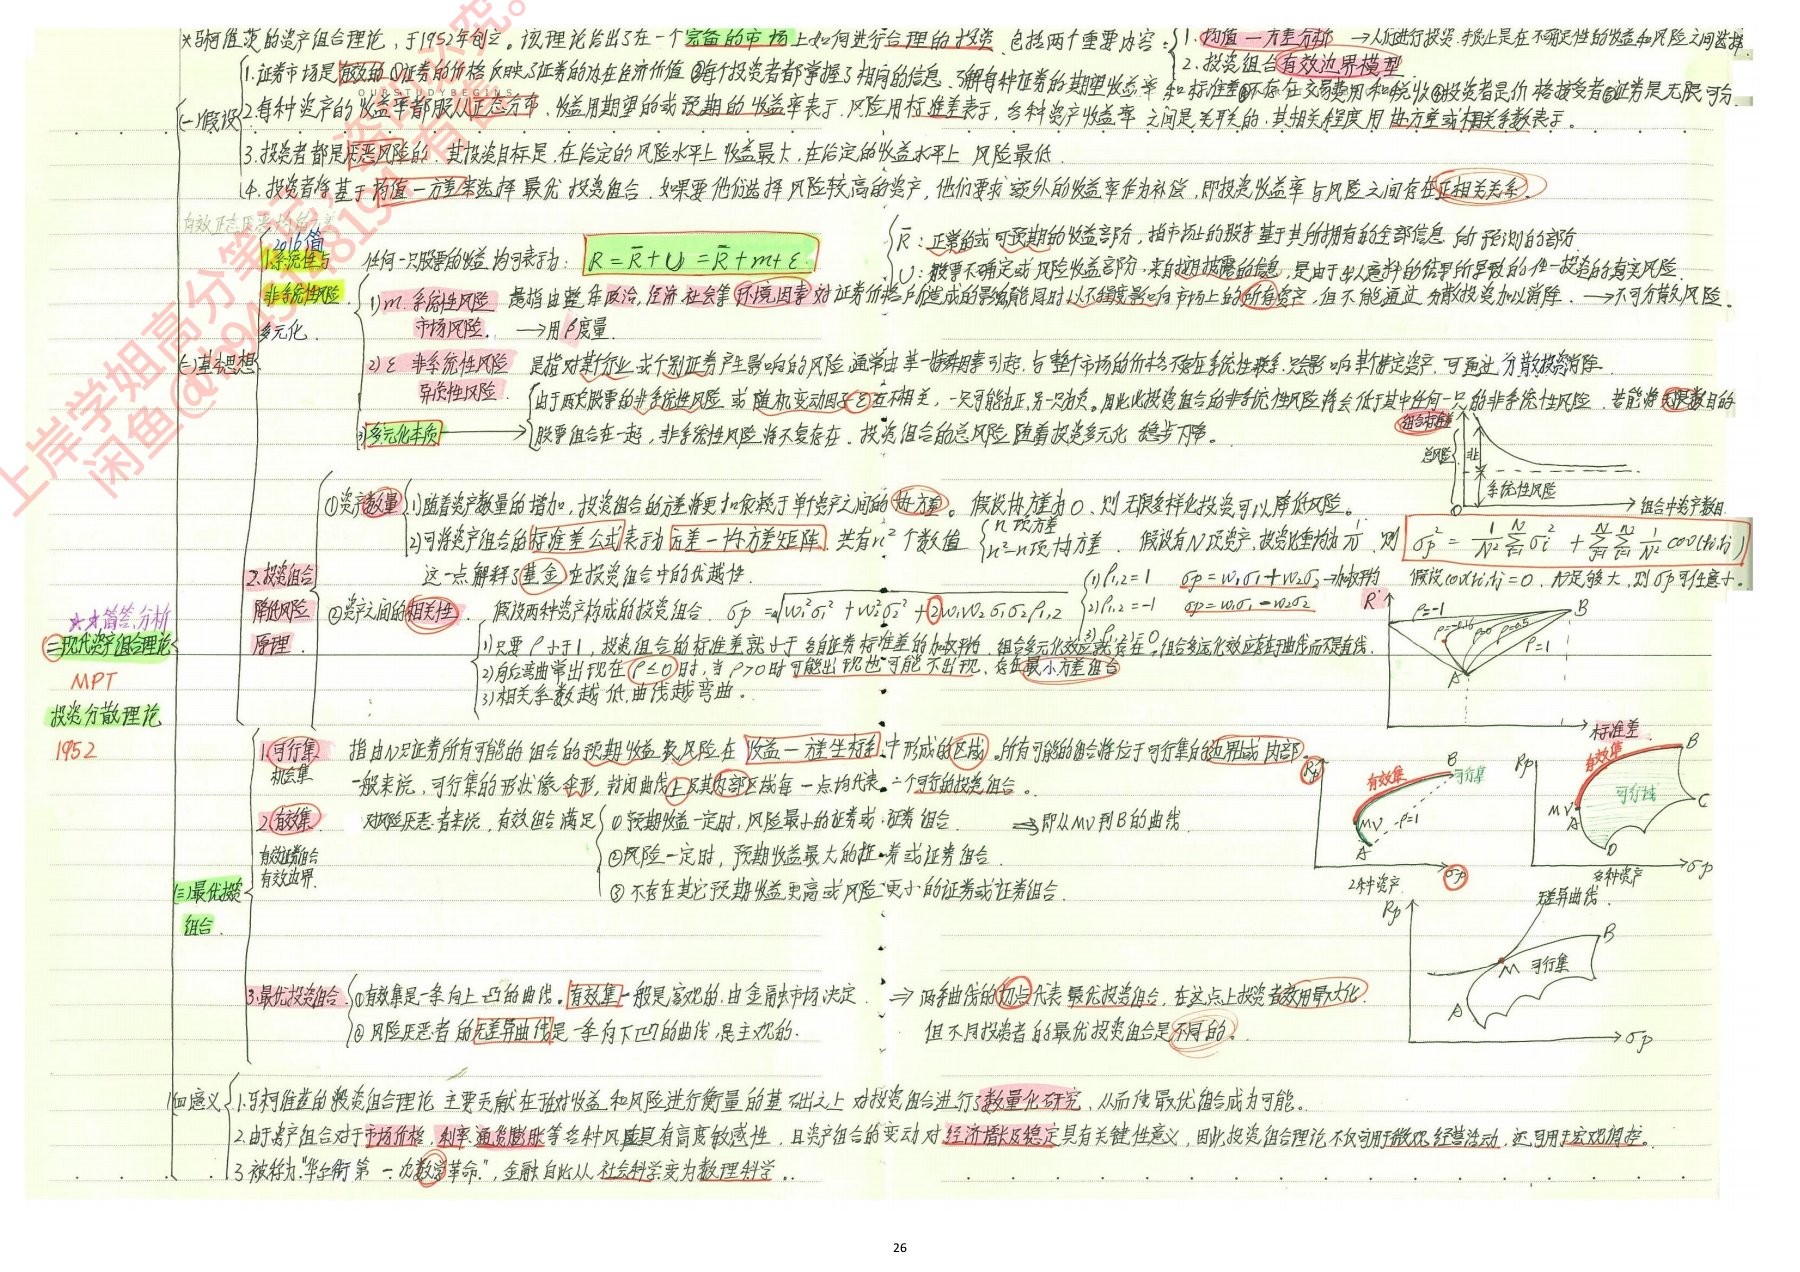 *马柯维茨的资产组合理论，于1952年创立。该理论给出了在一个完备的市场上如何进行合理的投资，包括两个重要内容：
1. 均值一方差分析 → 人们进行投资，本质上是在不确定性的收益和风险之间选择
2. 投资组合有效边界模型
OURSTUDYBEGINS
(一)假设
1.证券市场是有效的 ①证券的价格反映了证券的内在经济价值 ②每个投资者都掌握了相同的信息，了解每种证券的期望收益率和标准差 ③不存在交易费用和税收 ④投资者是价格接受者 ⑤证券是无限可分
2.每种资产的收益率都服从正态分布，收益用期望的或预期的收益率表示，风险用标准差表示，各种资产收益率之间是关联的，其相关程度用协方差或相关系数表示。
3.投资者都是厌恶风险的，其投资目标是，在给定的风险水平上收益最大，在给定的收益水平上风险最低.
4.投资者将基于均值一方差来选择最优投资组合，如果要他们选择风险较高的资产，他们要求额外的收益率作为补偿，即投资收益率与风险之间存在正相关关系。
2016简
1.系统性与
非系统性风险
多元化.
任何一只股票的收益均可表示为：R = R̄ + U = R̄ + m + ε.
R̄：正常的或可预期的收益部分，指市场上的股东基于其所拥有的全部信息所预测的部分.
U：股票不确定或风险收益部分，来自于披露的信息，是由于出人意料的结果所导致的任一投资的真实风险.
(二)基本思想
1) m 系统性风险
市场风险. → 用β度量
是指由整体政治、经济、社会等环境因素对证券价格所造成的影响，能同时以不同程度影响市场上的所有资产，但不能通过分散投资加以消除. → 不可分散风险.
2) ε 非系统性风险
异质性风险.
是指对某个行业或个别证券产生影响的风险，通常由单一特殊因素引起，与整个市场的价格不存在系统性联系，只会影响某个特定资产，可通过分散投资消除.
3) 多元化本质 →
由于两只股票的非系统性风险或随机变动因子ε互不相关，一只可能为正，另一只为负。因此此投资组合的非系统性风险将会低于其中任何一只的非系统性风险，若能将无限数目的
股票组合在一起，非系统性风险将不复存在，投资组合的总风险随着投资多元化稳步下降。
组合标准差
总风险
非
系统性风险
组合中资产数目
2.投资组合
降低风险
原理.
①资产数量
1)随着资产数量的增加，投资组合的方差将更加依赖于单个资产之间的协方差。假设协方差为0，则无限多样化投资可以降低风险。
2)可将资产组合的标准差公式表示为方差一协方差矩阵，共有n²个数值 n项方差 n²-n项协方差. 假设有N项资产，投资比重均为1/N，则 σp² = 1/N² Σσi² + ΣΣ 1/N² cov(ri,rj)
这一点解释了基金在投资组合中的优越性. 假设cov(ri,rj)=0，N足够大，则σp可任意小。
②资产之间的相关性. 假设两种资产构成的投资组合 σp = √(w₁²σ₁² + w₂²σ₂² + 2w₁w₂σ₁σ₂ρ₁,₂)
(1)ρ₁,₂=1 σp = w₁σ₁+w₂σ₂ → 加权平均
(2)ρ₁,₂=-1 σp=w₁σ₁-w₂σ₂
1)只要ρ小于1，投资组合的标准差就小于各自证券标准差的加权平均，组合多元化效应就存在。组合多元化效应存在于曲线而不是直线.
2)向后弯曲常出现在(ρ≤0)时，当ρ>0时可能出现也可能不出现，存在最小方差组合
3)相关系数越低，曲线越弯曲。
R
ρ=-1
ρ=0
ρ=0.5
ρ=1
A
B
标准差
**简答、分析
二现代资产组合理论
MPT
投资分散理论
1952
(三)最优投资
组合.
1.可行集
机会集
指由N只证券所有可能的组合的预期收益与风险在收益一方差坐标系中形成的区域。所有可能的组合将位于可行集的边界或内部.
一般来说，可行集的形状像伞形，封闭曲线上及其内部区域每一点均代表一个可行的投资组合。
2.有效集
有效证券组合
有效边界.
对风险厌恶者来说，有效组合满足
①预期收益一定时，风险最小的证券或证券组合. ⇒即从MV到B的曲线
②风险一定时，预期收益最大的证券或证券组合.
③不存在其它预期收益更高或风险更小的证券或证券组合.
Rp
有效集
B
可行集
MV
ρ=1
A
σp
2种资产
Rp
有效集
B
可行域
MV
A
C
D
σp
多种资产
3.最优投资组合
①有效集是一条向上凸的曲线。有效集一般是客观的，由金融市场决定.
②风险厌恶者的无差异曲线是一条向下凹的曲线，是主观的.
⇒ 两条曲线的切点代表最优投资组合，在这点上投资者效用最大化.
但不同投资者的最优投资组合是不同的。
Rp
无差异曲线.
B
M
可行集
A
σp
(四)意义
1.马柯维茨的投资组合理论主要贡献在于在对收益和风险进行衡量的基础之上对投资组合进行了数量化研究，从而使最优组合成为可能。
2.由于资产组合对于市场价格、利率、通货膨胀等各种风险具有高度敏感性，且资产组合的变动对经济增长及稳定具有关键性意义，因此投资组合理论不仅可用于微观经营活动，还可用于宏观调控.
3.被称为“华尔街第一次数学革命”，金融自此从社会科学变为数理科学。
上岸学姐高分笔记，
26